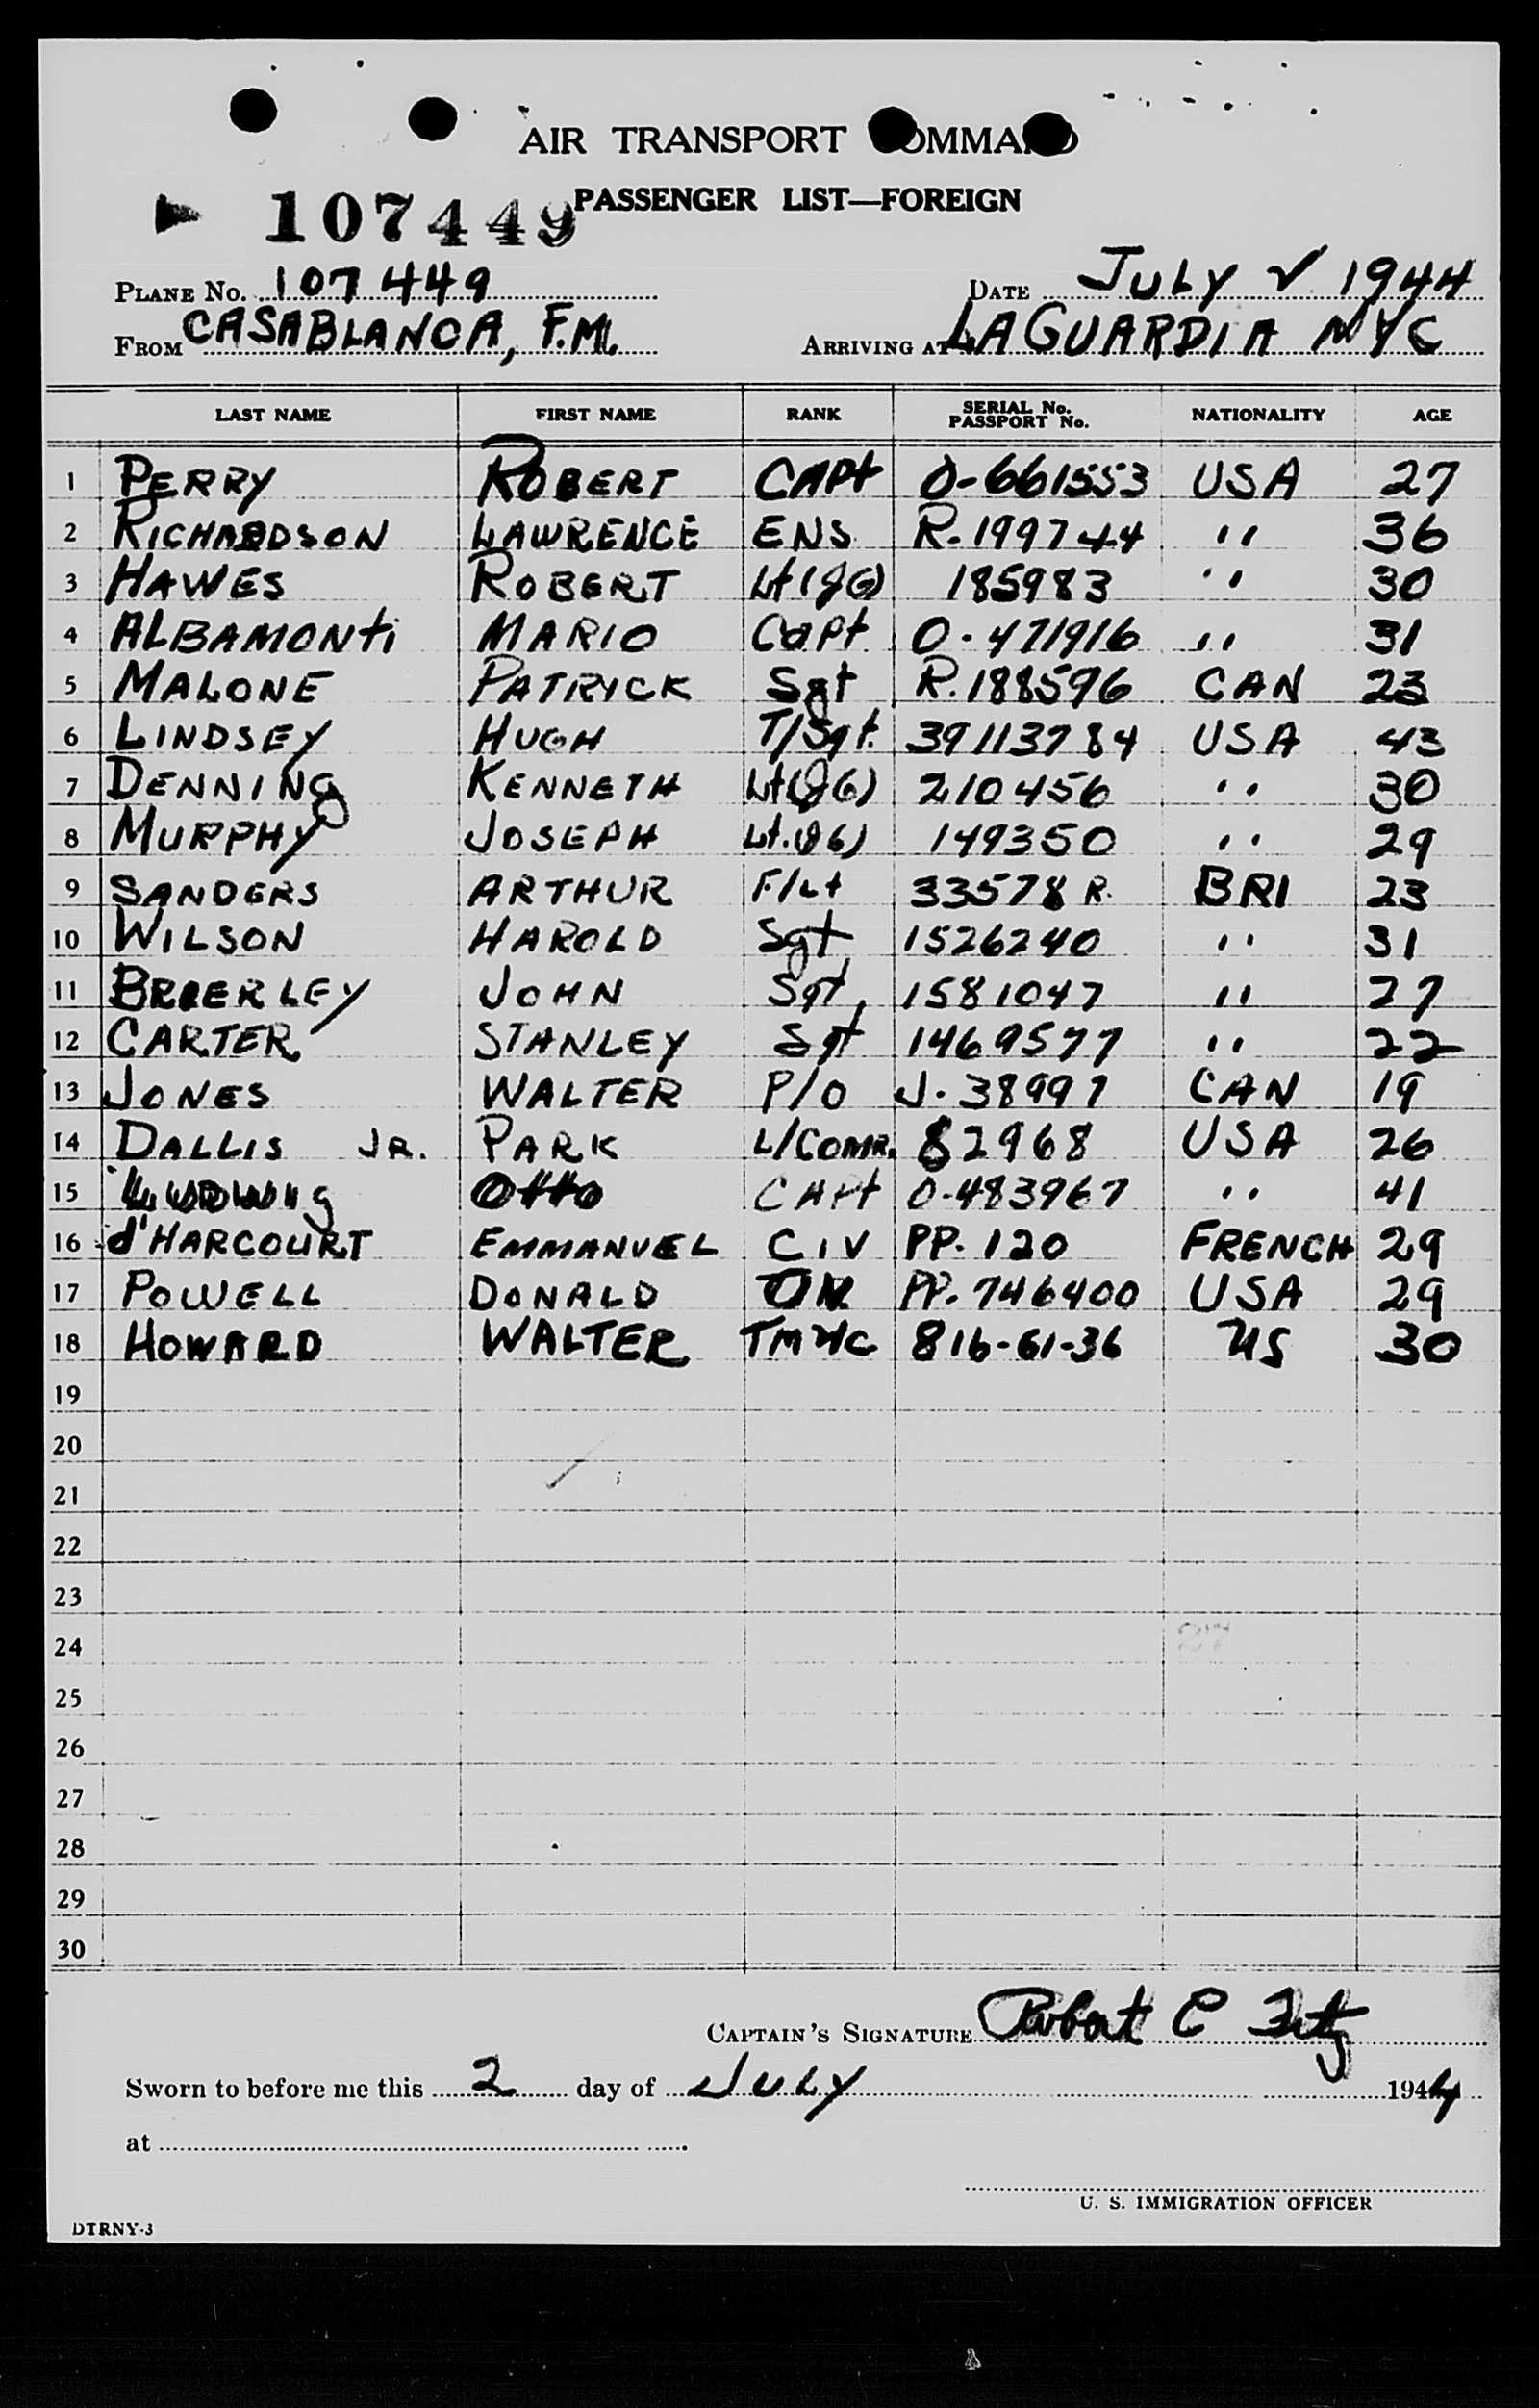 AIR TRANSPORT COMMAND
PASSENGER LIST—FOREIGN
107449
PLANE NO. 107449 DATE JULY 2 1944
FROM CASABLANCA, F.M. ARRIVING AT LAGUARDIA NYC
LAST NAME FIRST NAME RANK SERIAL No. PASSPORT No. NATIONALITY AGE
1 PERRY ROBERT CAPt O-661553 USA 27
2 RICHARDSON LAWRENCE ENS. R-199744 '' 36
3 HAWES ROBERT Lt(JG) 185983 '' 30
4 ALBAMONti MARIO Capt. O-471916 '' 31
5 MALONE PATRICK Sgt R.188596 CAN 23
6 LINDSEY HUGH T/Sgt. 39113784 USA 43
7 DENNING KENNETH Lt(JG) 210456 '' 30
8 MURPHY JOSEPH Lt.(JG) 149350 '' 29
9 SANDERS ARTHUR F/Lt 33578 R. BRI 23
10 WILSON HAROLD Sgt 1526240 '' 31
11 BRIERLEY JOHN Sgt, 1581047 '' 27
12 CARTER STANLEY Sgt 1469577 '' 22
13 JONES WALTER P/O J.38997 CAN 19
14 DALLIS JR. PARK L/COMR. 82968 USA 26
15 LUDWIG Otto CAPt O-483967 '' 41
16 d'HARCOURT EMMANUEL CIV PP. 120 FRENCH 29
17 POWELL DONALD PP. 746400 USA 29
18 HOWARD WALTER TM2/C 816-61-36 US 30
19
20
21
22
23
24
25
26
27
28
29
30
CAPTAIN'S SIGNATURE Robert C
Sworn to before me this 2 day of JULY 1944
at
U. S. IMMIGRATION OFFICER
DTRNY-3